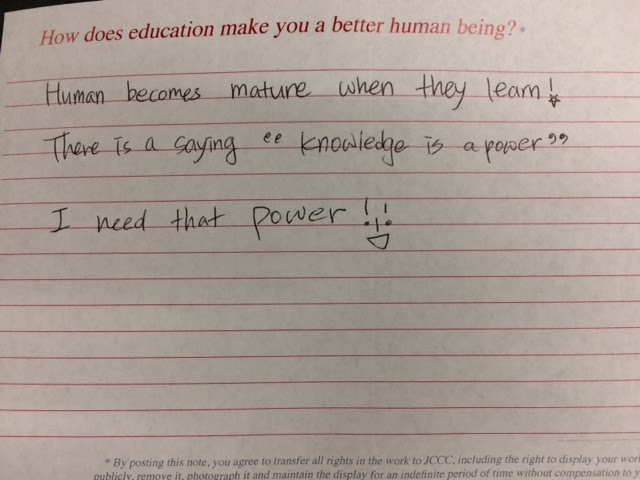 How does education make you a better human being?*
Human becomes mature when they learn!
There is a saying "knowledge is a power"
I need that power!!
* By posting this note, you agree to transfer all rights in the work to JCCC, including the right to display your
publicly, remove it, photograph it and maintain the display for an indefinite period of time without compensation to